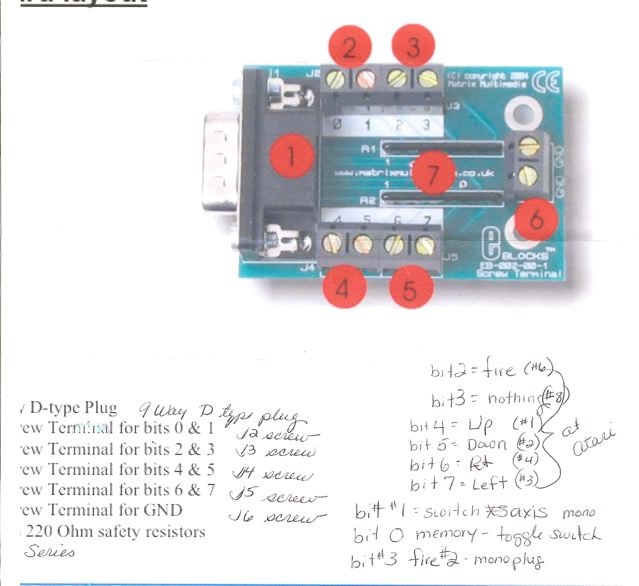 layout
2 3
J1 J2
(C) copyright 2004
Matrix Multimedia CE
J3
0 1 2 3
1
R1
GND
1
www.matrixmul .co.uk
7
GND
1
R2
6
4 5 6 7
e BLOCKS™
EB-002-00-1
Screw Terminal
J4 J5
4 5
bit2 = fire (#6)
bit3 = nothing (#8)
bit 4 = Up (#1)
bit 5 = Down (#2)
bit 6 = Rt (#4)
bit 7 = Left (#3)
at atari
D-type Plug 9 way D type plug
rew Terminal for bits 0 & 1 J2 screw
rew Terminal for bits 2 & 3 J3 screw
rew Terminal for bits 4 & 5 J4 screw
rew Terminal for bits 6 & 7 J5 screw
rew Terminal for GND J6 screw
220 Ohm safety resistors
Series
bit #1 = switch axis mono
bit 0 memory - toggle switch
bit #3 fire #2 - mono plug